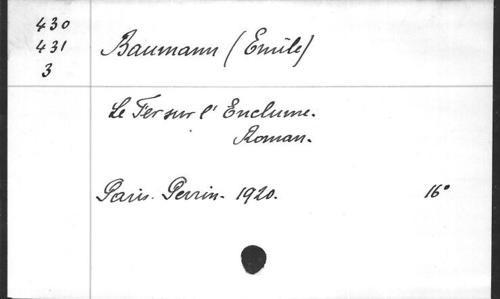 430
431
3
Baumann (Emile)
Le Fer sur l' Enclume.
Roman.
Paris. Perrin. 1920. 16°